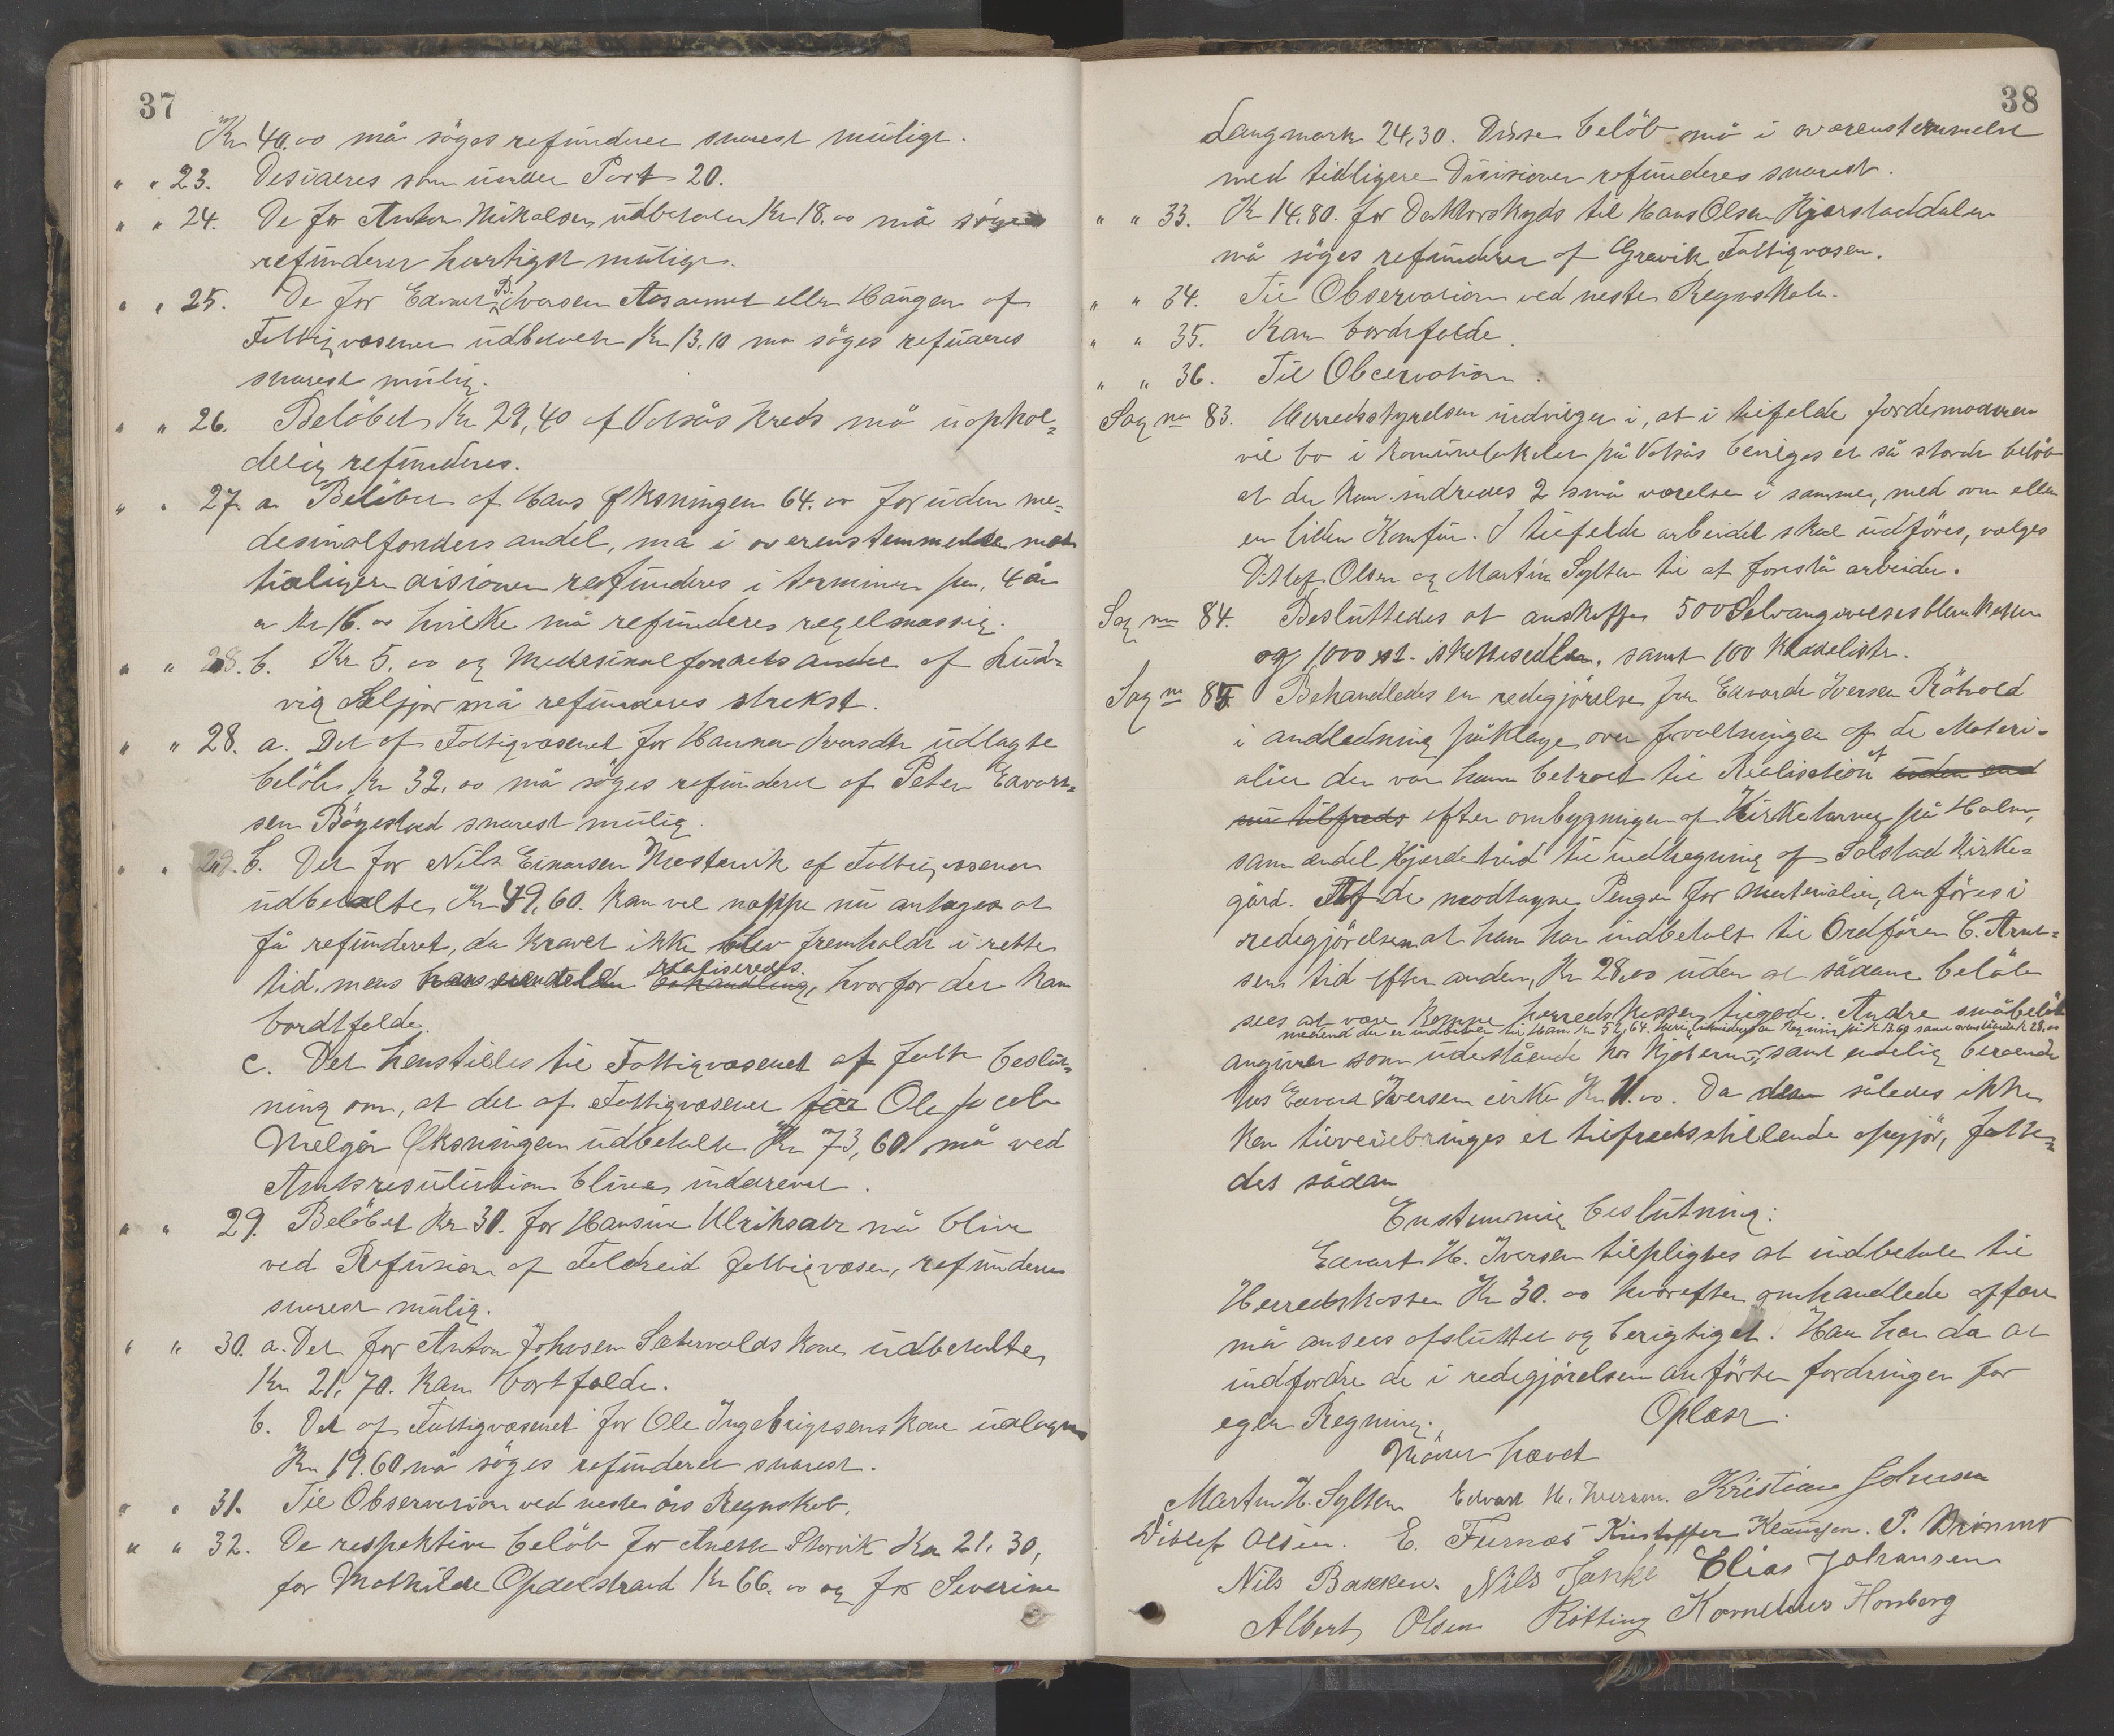 37
Kr 40.00 må søges refunderet snarest muligt.
" " 23. Desideres som under Post 20.
" " 24. De for Anton Mikalsen udbetalte Kr 18.00 må søges
refunderet hurtigst muligt.
" " 25. De for Edvart B. Iversen Aasarmet eller Haugen af
Fattigvæsenet udbetalte Kr 13,10 må søges refunderes
snarest mulig.
" " 26. Beløbet Kr 29,40 af Velsås Kreds må uophol=
delig refunderes.
" " 27. a. Beløbet af Hans Øksningen 64.00 foruden me=
desinalfondets andel, må i overenstemmelse med
tidligere disisioner refunderes i terminer pr. 4 år
a Kr 16.00 hvilke må refunderes regelmæssig.
" " 28. b. Kr 5.00 og Medesinalfondets andel af Lud=
vig Seljør må refunderes strekst.
" " 28. a. Det af Fattigvæsenet for Hanna Iversdtr udlagte
beløb Kr 32.00 må søges refunderet af Peter Edvart=
sen Bøgestad snarest mulig.
" " 29. b. Det for Nils Einarsen Mostervik af Fattigvæsenet
udbetalte Kr 49,60. kan vel næppe nu antages at
få refunderet, da kravet ikke blev fremholdt i rette
tid, mens hans eiendele realiseredes. behandling, hvorfor det kan
bortfelde.
c. Det henstilles til Fattigvæsenet at fatte beslut=
ning om, at det af Fattigvæsenet for Ole Jacob
Melgår Øksningen udbetalte Kr 73,60 må ved
Amtsresulution blive inddrevet.
" " 29. Beløbet Kr 30. for Hansine Ulriksdtr må blive
ved Refusion af Foldreid fattigvæsen, refunderet
snarest mulig.
" " 30. a. Det for Anton Johnsen Sætervolds kone udbetalte
Kr 21,70. kan bortfalde.
b. Det af Fattigvæsenet for Ole Ingebrigtsens kone udlagte
Kr 19.60 må søges refunderet snarest.
" " 31. Til Observation ved neste års Regnskab.
" " 32. De respektive beløb for Anette Storvik Kr 21,30,
for Mathilde Opdelstrand Kr 66.00 og for Severine
38
Langmark 24,30. Disse beløb må i overenstemmelse
med tidligere Disisioner refunderes snarest.
" " 33. Kr 14.80. for Doktorskyds til Hans Olsen Kjærstaddalen
må søges refunderet af Gravik Fattigvæsen.
" " 34. Til Observation ved neste Regnskab.
" " 35. Kan bortfalde.
" " 36. Til Obcervation.
Sag no 83. Herredsstyrelsen indvilger i, at i tilfelde jordemoderen
vil bo i Komunelokalet på Velsås beviliges et så stordt beløb
at der kan indredes 2 små værelser i samme, med ovn eller
en liden Komfur. I tilfelde arbeidet skal udføres, valges
Ditlef Olsen og Martin Sylten til at forestå arbeidet.
Sag no 84. Besluttedes at anskaffe 500 Selvangivelsesblanketter
og 1000 st. skattesedler, samt 100 Kladelister.
Sag no 85. Behandledes en redegjørelse fra Edvardt Iversen Råhold
i andledning påklage over forvaltningen af de Materi=
alier der var ham betroet til Realisation af uden end
nu tilfreds efter ombygningen af Kirketarnet på Holm,
samt endel Gjerdetråd til indhegning af Solstad Kirke=
gård. Af de modtagne Penger for materialier, anføres i
redegjørelsen at han har indbetalt til Ordfører C. Arnt=
sen tid efter anden, Kr 28.00 uden at sådant beløb
sees at være komne herredskassen tilgode. Andre småbeløb
angiver som udestående hos kjøberne, samt endelig beroende
hos Edvard Iversen cirka Kr 11.00. Da den således ikke
kan tilveiebringes et tilfredsstillende opgjør, fatte=
des sådan
Enstemmig beslutning:
Edvart H. Iversen tilpligtes at indbetale til
Herredskassen Kr 30.00 hvorefter omhandlede affære
må ansees afsluttet og berigtiget. Han har da at
indfordre de i redegjørelsen anførte fordringer for
egen Regning.
Oplæst.
Mødet hævet
Martin H. Sylten Edvart H. Iversen. Kristian Johnsen
Ditlef Olsen. E. Furnes Kristoffer Klausen. P. Brønmo
Nils Bakken. Nils Elias Johansen
Albert Olsen Røtting Kornelius Hornberg